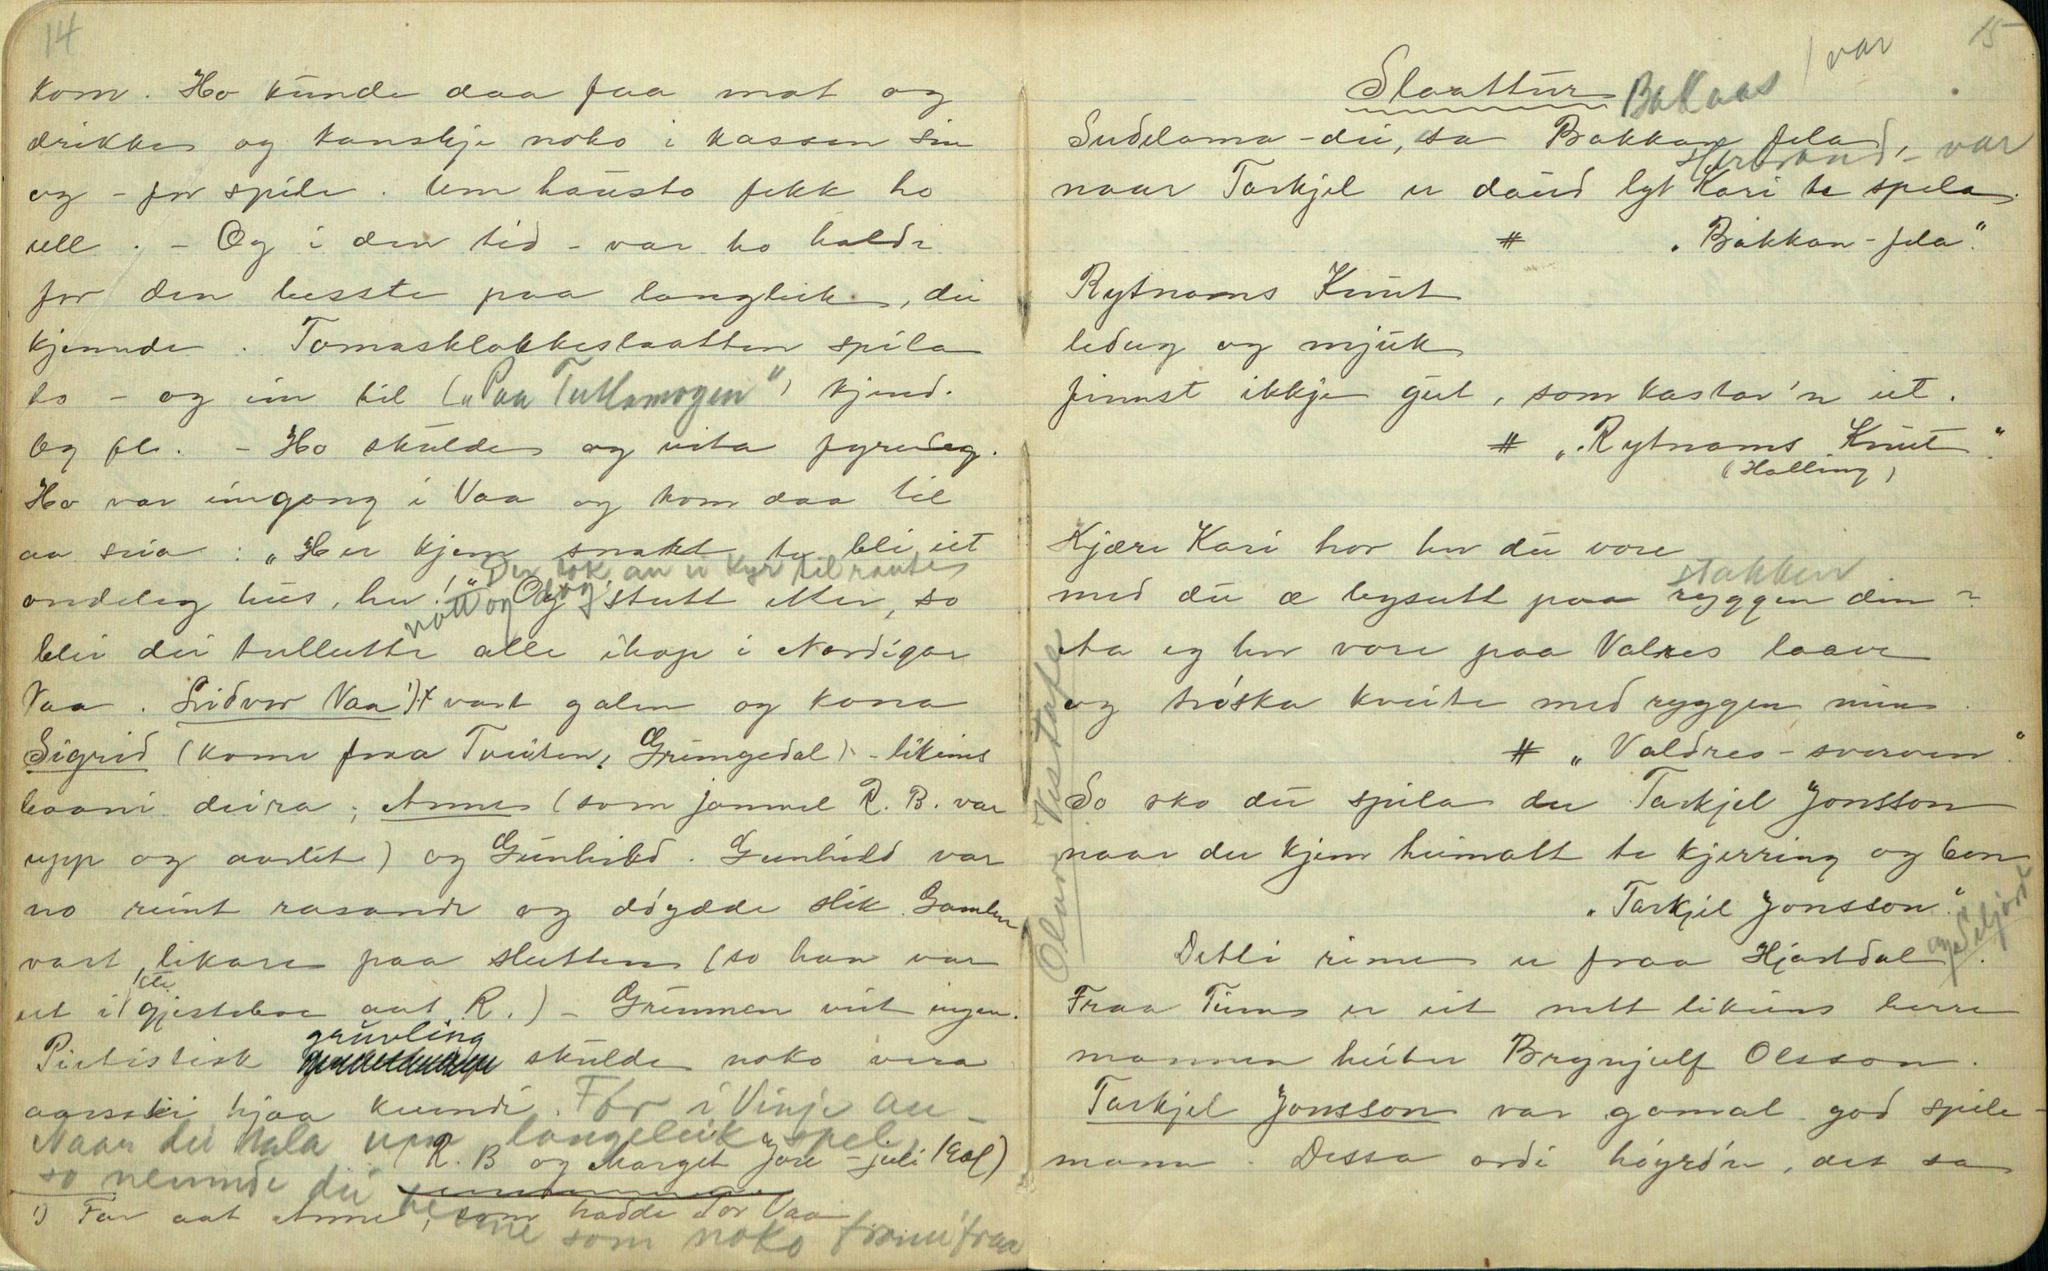 14
kom. Ho kunde daa faa mat og
drikka og kanskje noko i kassen sin
og - for spile. Um hausto fekk ho
ull. - Og i den tid - var ho haldi
for den besste paa langleik, dei
kjennde. Tomasklokkeslaatten spila
ho - og ein til („Paa Tullamogen") kjend.
Og fl. - Ho skulde og vita fyredeg.
Ho var eingong i Vaa og kom daa til
aa seia: „Her kjem snakt te bli eit
Dei tok an u kyr til rauta
ondeleg hus, her!" Og stutt etter, so
natt og dag
blei dei tullutte alle ihop i Nordigar
Vaa. Eidvor Vaa 1) vart galen og kona
Sigrid (kome fraa Tveiten, Grungedal) - likeins
baani deira; Anne (som jamnel R. B. var
upp og aarlet) og Gunhild. Gunhild var
no reint rasande og döydde slik. Gamlen
vart likare paa slutten (so han var
ut i eit gjestebo aat R.) - Grunnen veit ingen.
grubling
Pietistisk skulde noko vera
aarsaki hjaa kvendi. For i Vinje au -
Naar dei tala um langeleik spel,
(R. B og Marget Jore - juli 1901)
so nemnde dei
1) Far aat Anne, som hadde Tor Vaa
henne som noko framifraa
15
Slaattur
Bakaas
var
Sudelama - dei, sa Bakkan fela,
Herbrand - var
naar Tarkjel er daud lyt Kari te spela.
# „Bakkan-fela".
Rytnams Knut
ledug og mjuk
finnst ikkje gut, som kastar'n ut.
# „Rytnams Knut".
(Halling)
Kjære Kari hor hev du vore
stakken
med du æ bysutt paa ryggen din?
Aa eg hev vore paa Valres laave
og tröska kveite med ryggen min.
# „Valdres-sverven".
So ska du spila du Tarkjel Jonsson
naar du kjem heimatt te kjerring og bon
„Tarkjel Jonsson".
Detti rime er fraa Hjartdal
og Seljord.
Fraa Tinn er eit nett likeins berre
mannen heiter Brynjulf Olsson.
Tarkjel Jonsson var gamal god spele-
mann. Dessa ordi höyrd'n, det sa
Olav Vistafe